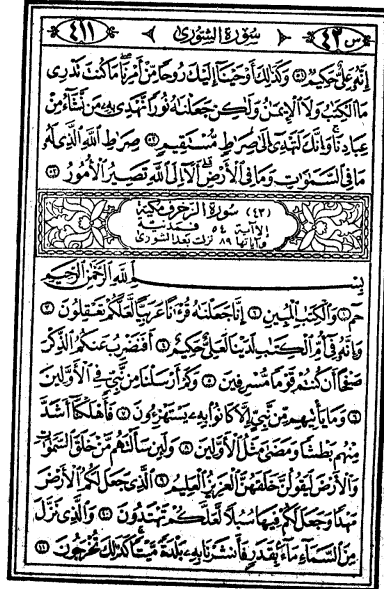 س ٤٢ سُورَةُ الشُّورَىٰ ٤١١
إِنَّهُ عَلِيٌّ حَكِيمٌ ٥١ وَكَذَٰلِكَ أَوْحَيْنَا إِلَيْكَ رُوحًا مِّنْ أَمْرِنَا مَا كُنتَ تَدْرِى
مَا الْكِتَٰبُ وَلَا الْإِيمَٰنُ وَلَٰكِن جَعَلْنَٰهُ نُورًا نَّهْدِى بِهِ مَن نَّشَاءُ مِنْ
عِبَادِنَا وَإِنَّكَ لَتَهْدِى إِلَىٰ صِرَٰطٍ مُّسْتَقِيمٍ ٥٢ صِرَٰطِ اللَّهِ الَّذِى لَهُ
مَا فِى السَّمَٰوَٰتِ وَمَا فِى الْأَرْضِ أَلَا إِلَى اللَّهِ تَصِيرُ الْأُمُورُ ٥٣
(٤٣) سُورَةُ الزُّخْرُفِ مَكِّيَّة
إلا آية ٥٤ فمدنية
وآياتها ٨٩ نزلت بعد الشورى
بِسْمِ اللَّهِ الرَّحْمَٰنِ الرَّحِيمِ
حم ١ وَالْكِتَٰبِ الْمُبِينِ ٢ إِنَّا جَعَلْنَٰهُ قُرْءَٰنًا عَرَبِيًّا لَّعَلَّكُمْ تَعْقِلُونَ ٣
وَإِنَّهُ فِى أُمِّ الْكِتَٰبِ لَدَيْنَا لَعَلِيٌّ حَكِيمٌ ٤ أَفَنَضْرِبُ عَنكُمُ الذِّكْرَ
صَفْحًا أَن كُنتُمْ قَوْمًا مُّسْرِفِينَ ٥ وَكَمْ أَرْسَلْنَا مِن نَّبِىٍّ فِى الْأَوَّلِينَ
٦ وَمَا يَأْتِيهِم مِّن نَّبِىٍّ إِلَّا كَانُوا بِهِ يَسْتَهْزِءُونَ ٧ فَأَهْلَكْنَا أَشَدَّ
مِنْهُم بَطْشًا وَمَضَىٰ مَثَلُ الْأَوَّلِينَ ٨ وَلَئِن سَأَلْتَهُم مَّنْ خَلَقَ السَّمَٰوَٰتِ
وَالْأَرْضَ لَيَقُولُنَّ خَلَقَهُنَّ الْعَزِيزُ الْعَلِيمُ ٩ الَّذِى جَعَلَ لَكُمُ الْأَرْضَ
مَهْدًا وَجَعَلَ لَكُمْ فِيهَا سُبُلًا لَّعَلَّكُمْ تَهْتَدُونَ ١٠ وَالَّذِى نَزَّلَ
مِنَ السَّمَاءِ مَاءً بِقَدَرٍ فَأَنشَرْنَا بِهِ بَلْدَةً مَّيْتًا كَذَٰلِكَ تُخْرَجُونَ ١١